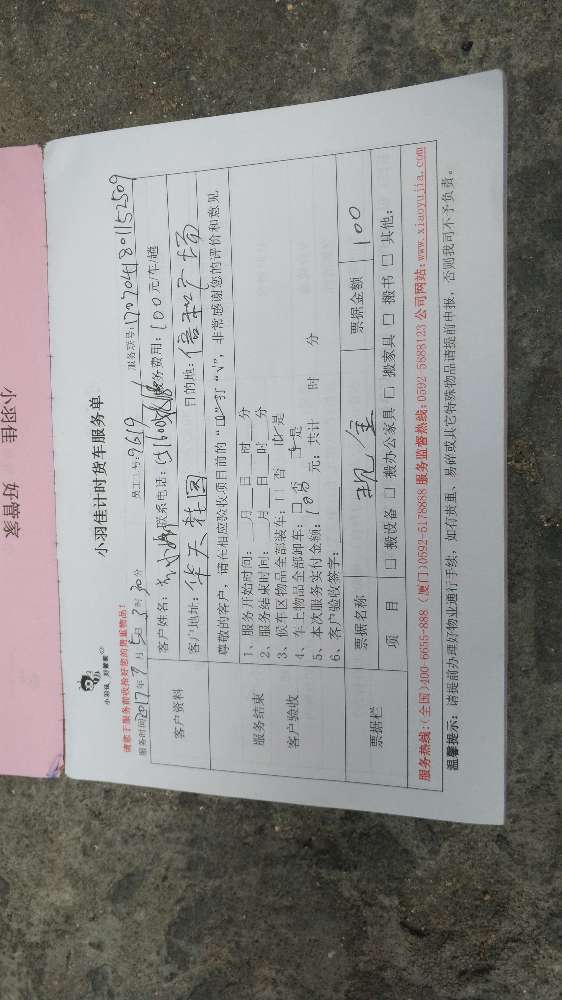 小羽佳
好管家
小羽佳计时货车服务单
小羽佳 好管家
请您于服务前收拾好您的贵重物品!
服务时间2017年7月5日3时30分 员工工号:9619 服务票号:1707041801152509
客户资料
客户姓名: 联系电话: 服务费用:100元/车/趟
客户地址:华天花园 目的地:信和广场
尊敬的客户,请在相应验收项目前的“□”打“√”,非常感谢您的评价和意见
服务结束
客户验收
1、服务开始时间:__月__日__时__分
2、服务结束时间:__月__日__时__分
3、候车区物品全部装车:□ 否 □ 是
4、车上物品全部卸车:□ 否 □ 是
5、本次服务实付金额:100 元;共计 时 分
6、客户验收签字:
票据栏
票据名称 现金 票据金额 100
项 目 □ 搬设备 □ 搬办公家具 □ 搬家具 □ 搬书 □ 其他:
服务热线:(全国)400-6655-888 (厦门)0592-5178888 服务监督热线:0592-5888123 公司网站:www.xiaoyujia.com
温馨提示:请提前办理好物业通行手续,如有贵重、易碎或其它特殊物品请提前申报,否则我司不予负责。